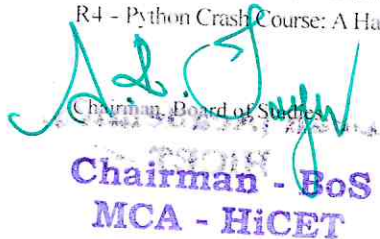 R4 - Python Crash Course: A Ha
Chairman, Board of Studies
Chairman - BoS
MCA - HiCET